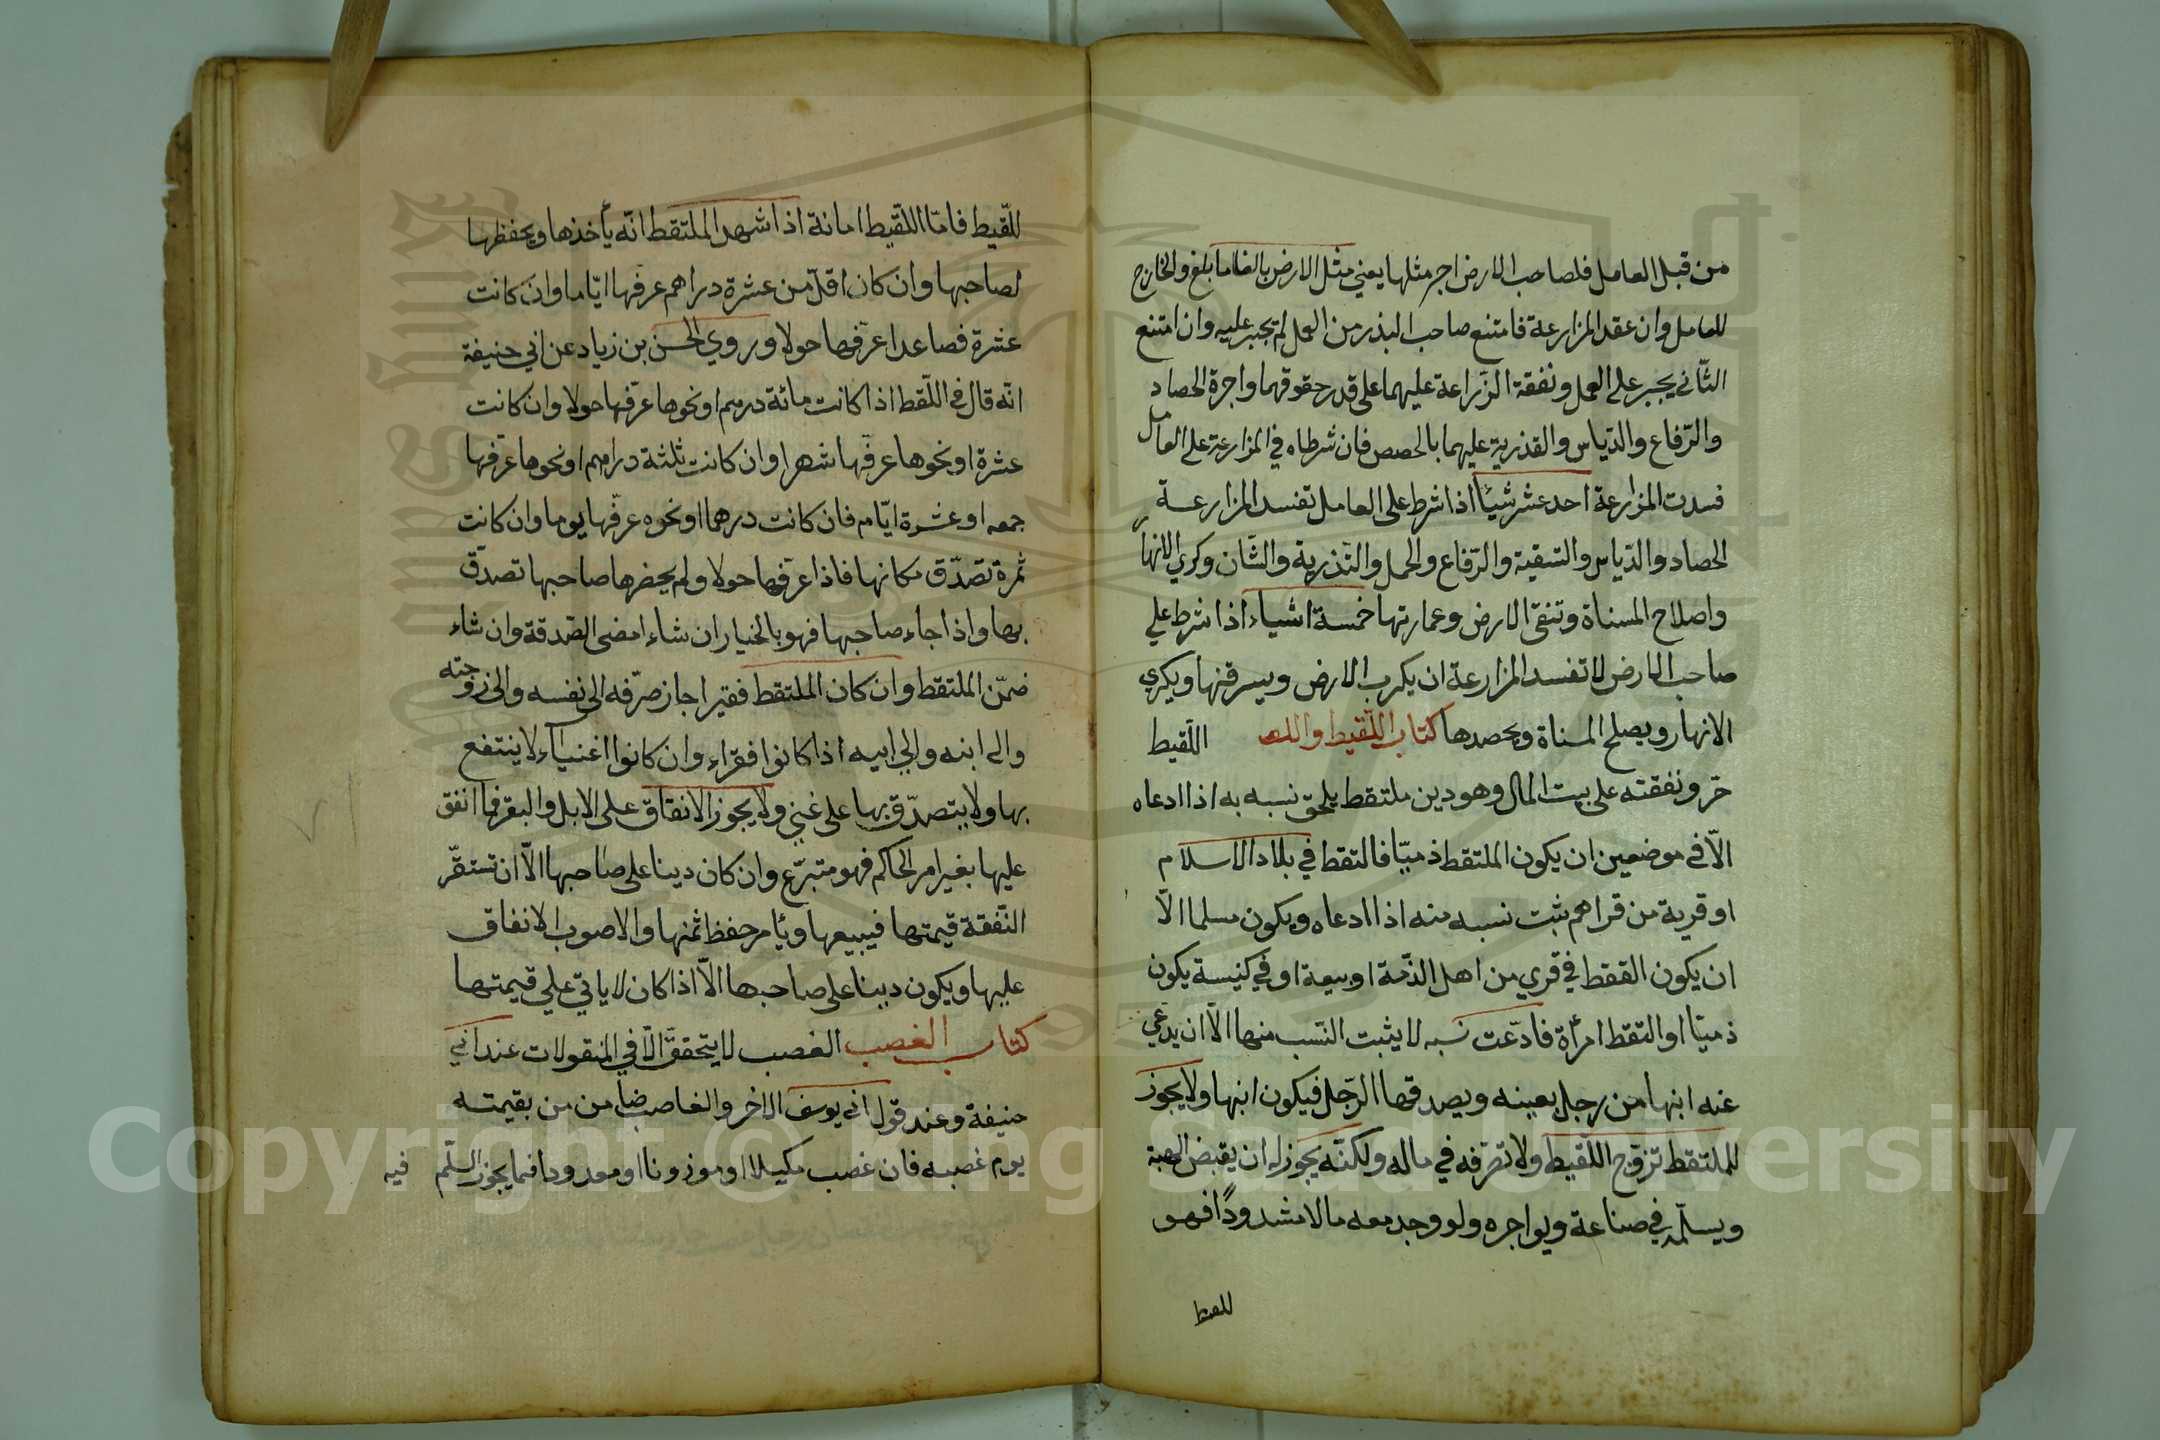 من قبل العامل فلصاحب الارض اجر مثلها يعني مثل الارض بالغا ما بلغ والخارج
للعامل وان عقد المزارعة فامتنع صاحب البذر من العمل لم يجبر عليه وان امتنع
الثّاني يجبر على العمل ونفقة الزراعة عليهما على قدر حقوقهما واجرة الحصاد
والرّفاع والدّياس والتذرية عليهما بالحصص فان شرطاه في المزارعة على العامل
فسدت المزارعة احد عشر شيئا اذا شرط على العامل تفسد المزارعة
الحصاد والدّياس والتسقية والرّفاع والحمل والتّذرية والتّبان وكري الانهار
واصلاح المسناة وتنقى الارض وعمارتها خمسة اشياء اذا شرط علي
صاحب الارض لا تفسد المزارعة ان يكرب الارض ويسرقنها ويكري
الانهار ويصلح المسناة ويحصدها كتاب اللّقيط واللقطة اللّقيط
حرّ ونفقته على بيت المال وهو دين ملتقط يلحق نسبه به اذا ادعاه
الّا في موضعين ان يكون الملتقط ذميّا فالتقط في بلاد الاسلام
او قرية من قراهم ثبت نسبه منه اذا ادعاه ويكون مسلما الّا
ان يكون القفط في قري من اهل الذّمة او بيعة او في كنيسة يكون
ذميّا او التقط امرأة فادّعت نسبه لا يثبت النّسب منها الّا ان يدّعي
عنه ابنها من رجل بعينه ويصدقها الرّجل فيكون ابنها ولا يجوز
للملتقط تزويج اللّقيط ولا تصرّفه في ماله ولكنّه يجوز له ان يقبض الهبة
ويسلّمه في صناعة ويواجره ولو وجد معه مالا مشدودًا فهو
للقيط
للّقيط فامّا اللّقيط امانة اذا اشهد الملتقط انّه يأخذها ويحفظها
لصاحبها وان كان اقلّ من عشرة دراهم عرفّها ايّاما وان كانت
عشرة فصاعدا عرّفها حولا وروي الحسن بن زياد عن ابي حنيفة
انّه قال في اللّقط اذا كانت مائة درهم او نحوها عرّفها حولا وان كانت
عشرة او نحوها عرفّها شهرا وان كانت ثلثة دراهم او نحوها عرّفها
جمعه او عشرة ايّام فان كانت درهما او نحوه عرفّها يوما وان كانت
ثمرة تصدّق مكانها فاذا عرّفها حولا ولم يحضرها صاحبها تصدّق
بها واذا جاء صاحبها فهو بالخيار ان شاء امضى الصّدقة وان شاء
ضمّن الملتقط وان كان الملتقط فقيرا جاز صرّفه الى نفسه والى زوجته
والى ابنه والي ابيه اذا كانوا فقراء وان كانوا اغنياء لا ينتفع
بها ولا يتصدّق بها على غني ولا يجوز الانفاق على الابل والبقر فما انفق
عليها بغير امر الحاكم فهو متبرّع وان كان دينا على صاحبها الّا ان تستقرّ
النّفقة قيمتها فيبيعها ويأمر حفظ ثمنها والاصوب الانفاق
عليها ويكون دينا على صاحبها الّا اذا كان لا ياتي علي قيمتها
كتاب الغصب الغصب لا يتحقق الّا في المنقولات عند ابي
حنيفة وعند قول ابي يوسف الاخر والغاصب ضامن من بقيمته
يوم غصبه فان غصب مكيلا او موزونا او معدودا فيما يجوز السّلم فيه
Copyright © King Saud University